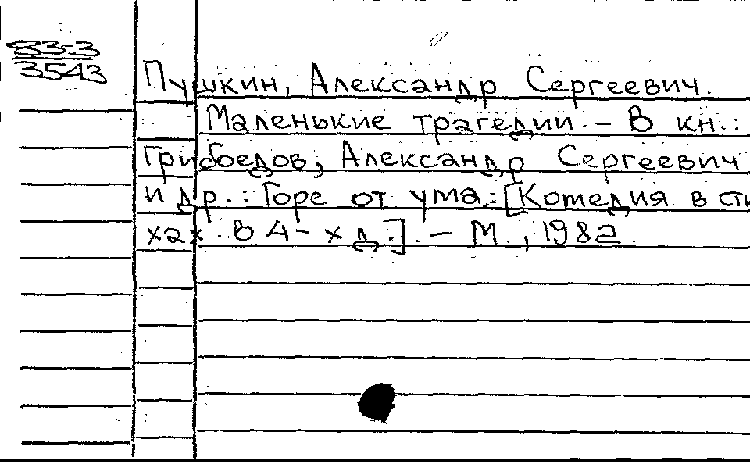 833
3543
Пушкин, Александр Сергеевич.
Маленькие трагедии. – В кн.:
Грибоедов, Александр Сергеевич
и др.: Горе от ума: [Комедия в сти
хах в 4-х д.]. – М., 1982